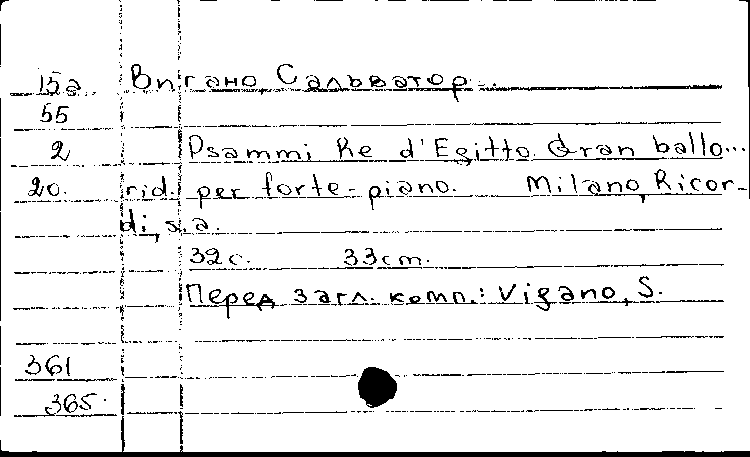 15a Вигано, Сальватор...
55
2 Psammi, Re d'Egitto. Gran ballo...
20. rid. per forte-piano. Milano, Ricor-
di, s.a.
32 c. 33 cm.
Перед загл. комп.: Vigano, S.
361
365.